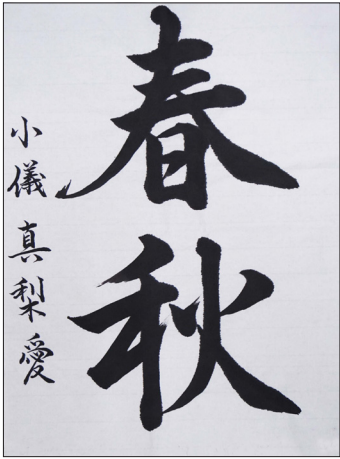 春秋
小儀真梨愛